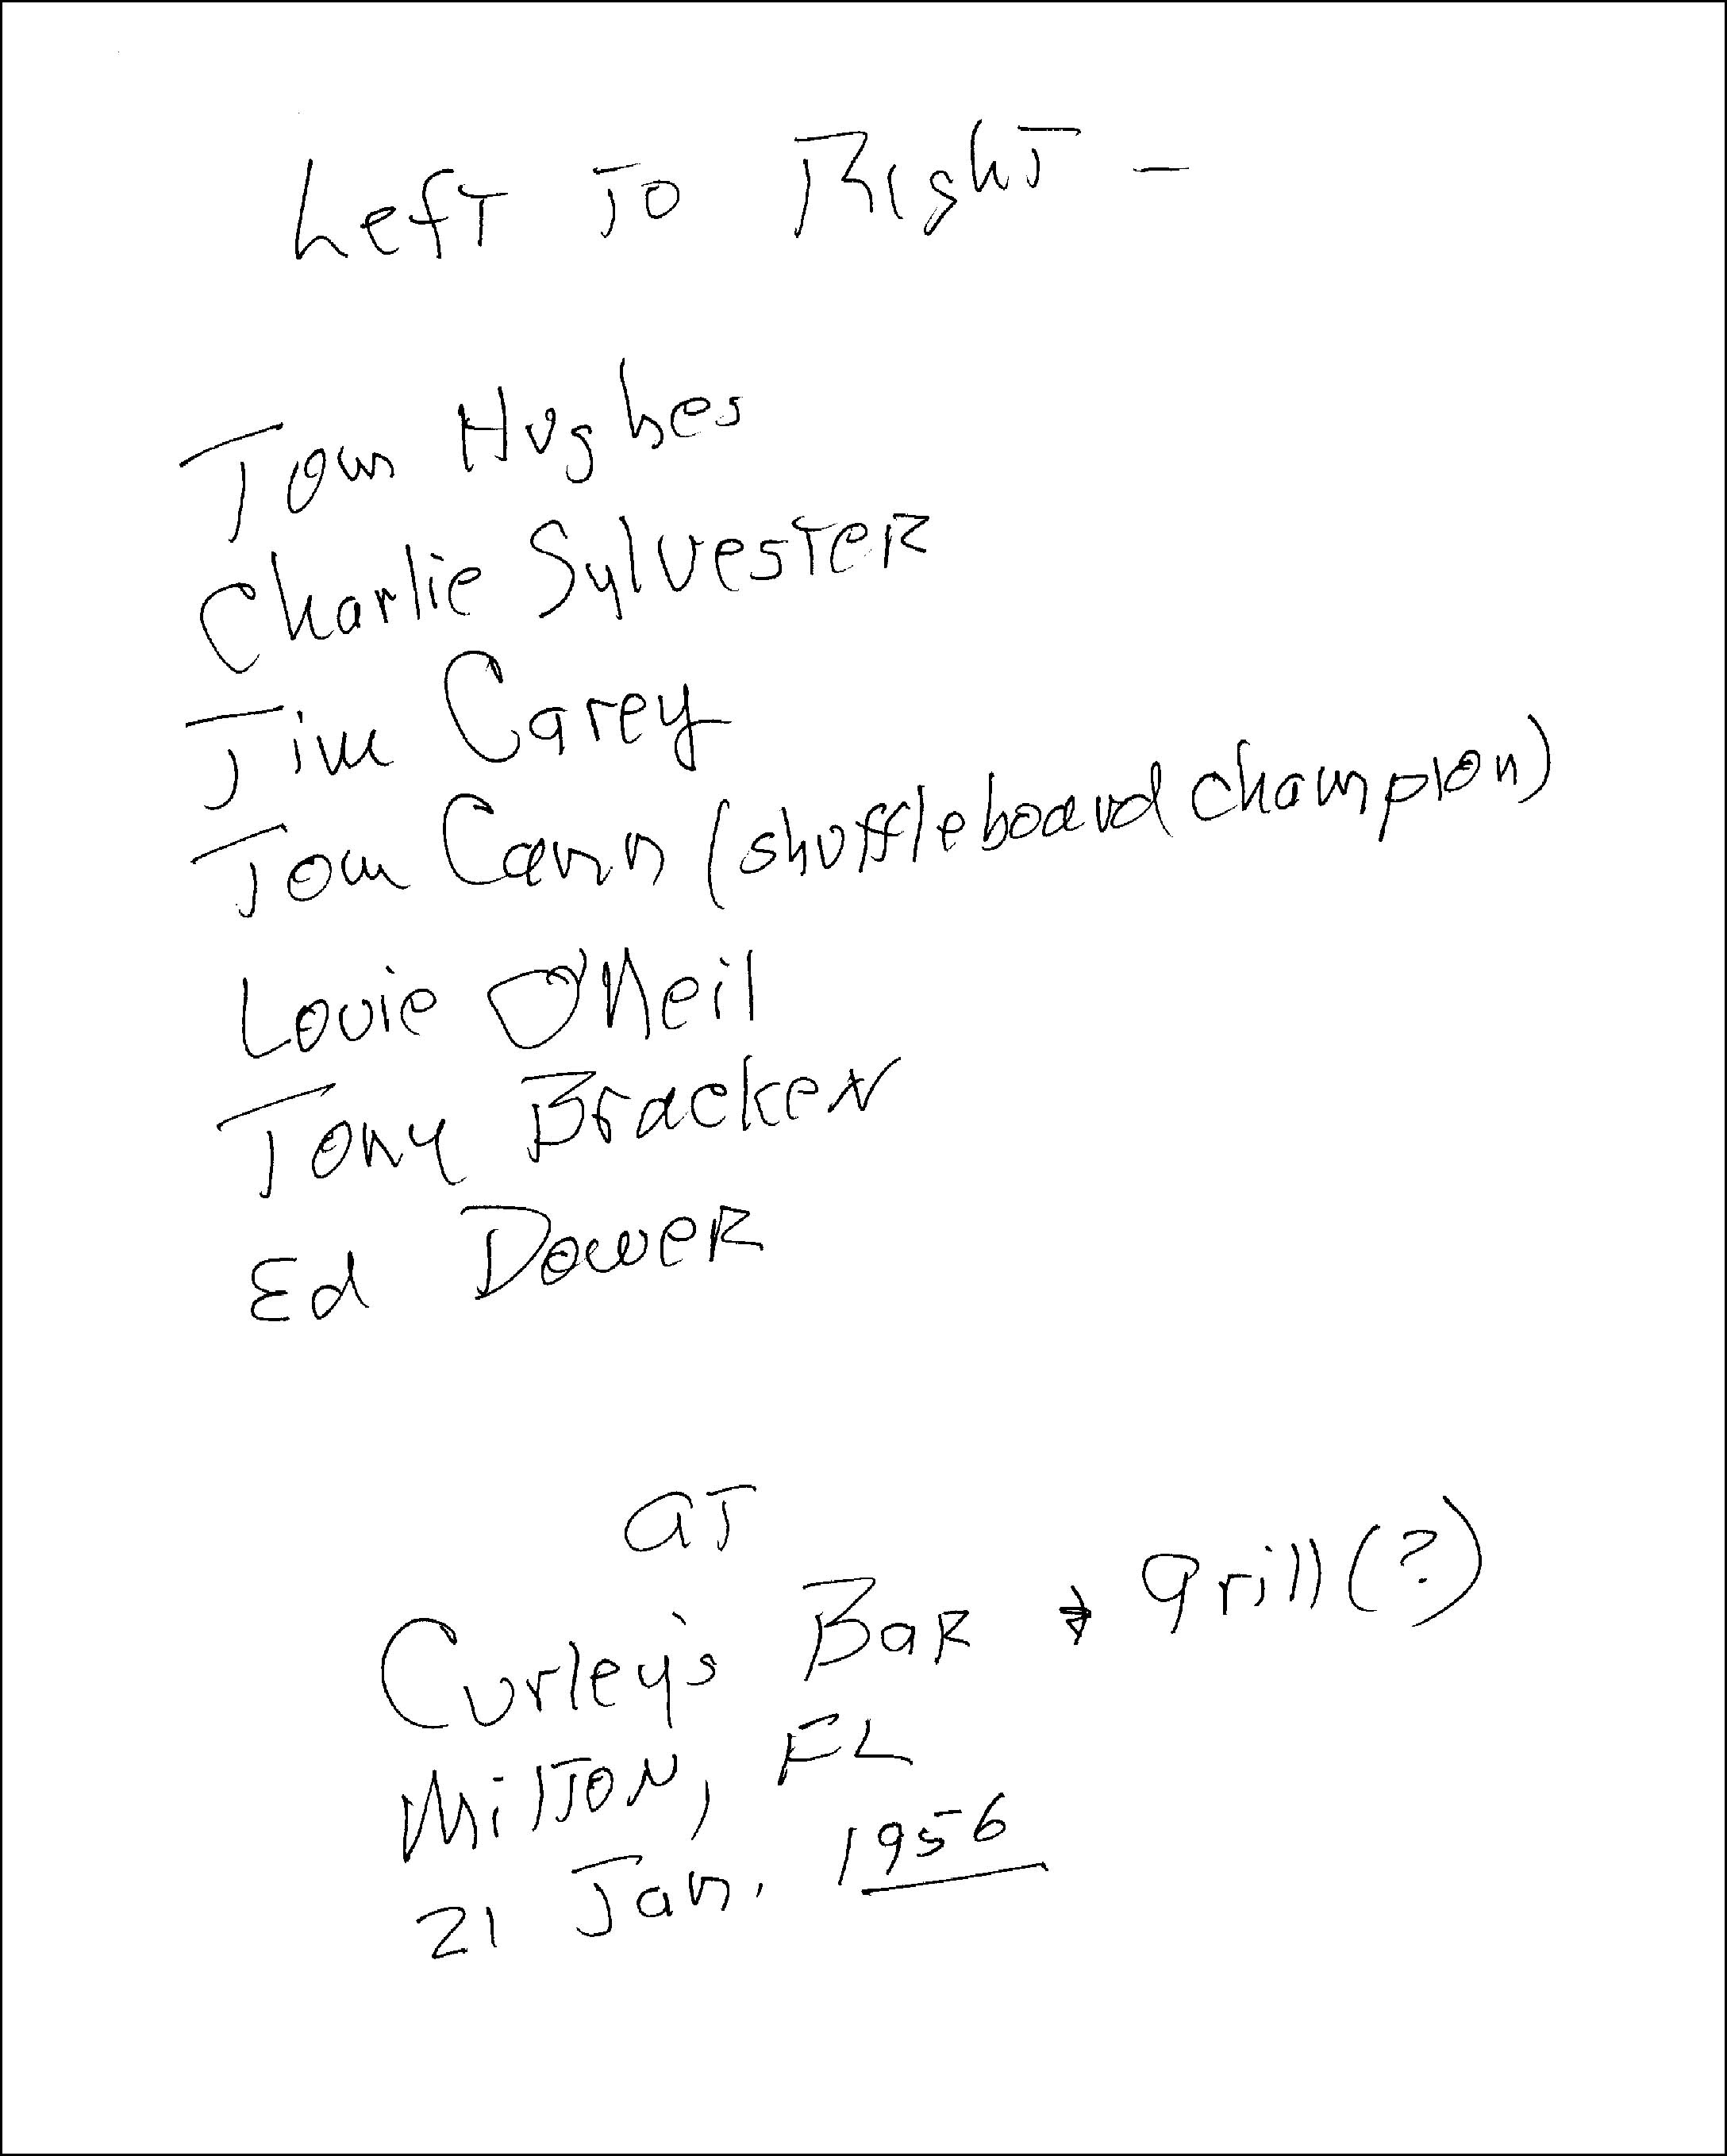 Left To Right -
Tom Hughes
Charlie Sylvester
Jim Carey
Tom Cann (shuffleboard champion)
Louie O'Neil
Tony Bracken
Ed Dower
at
Curley's Bar & grill (?)
Milton, FL
21 Jan. 1956